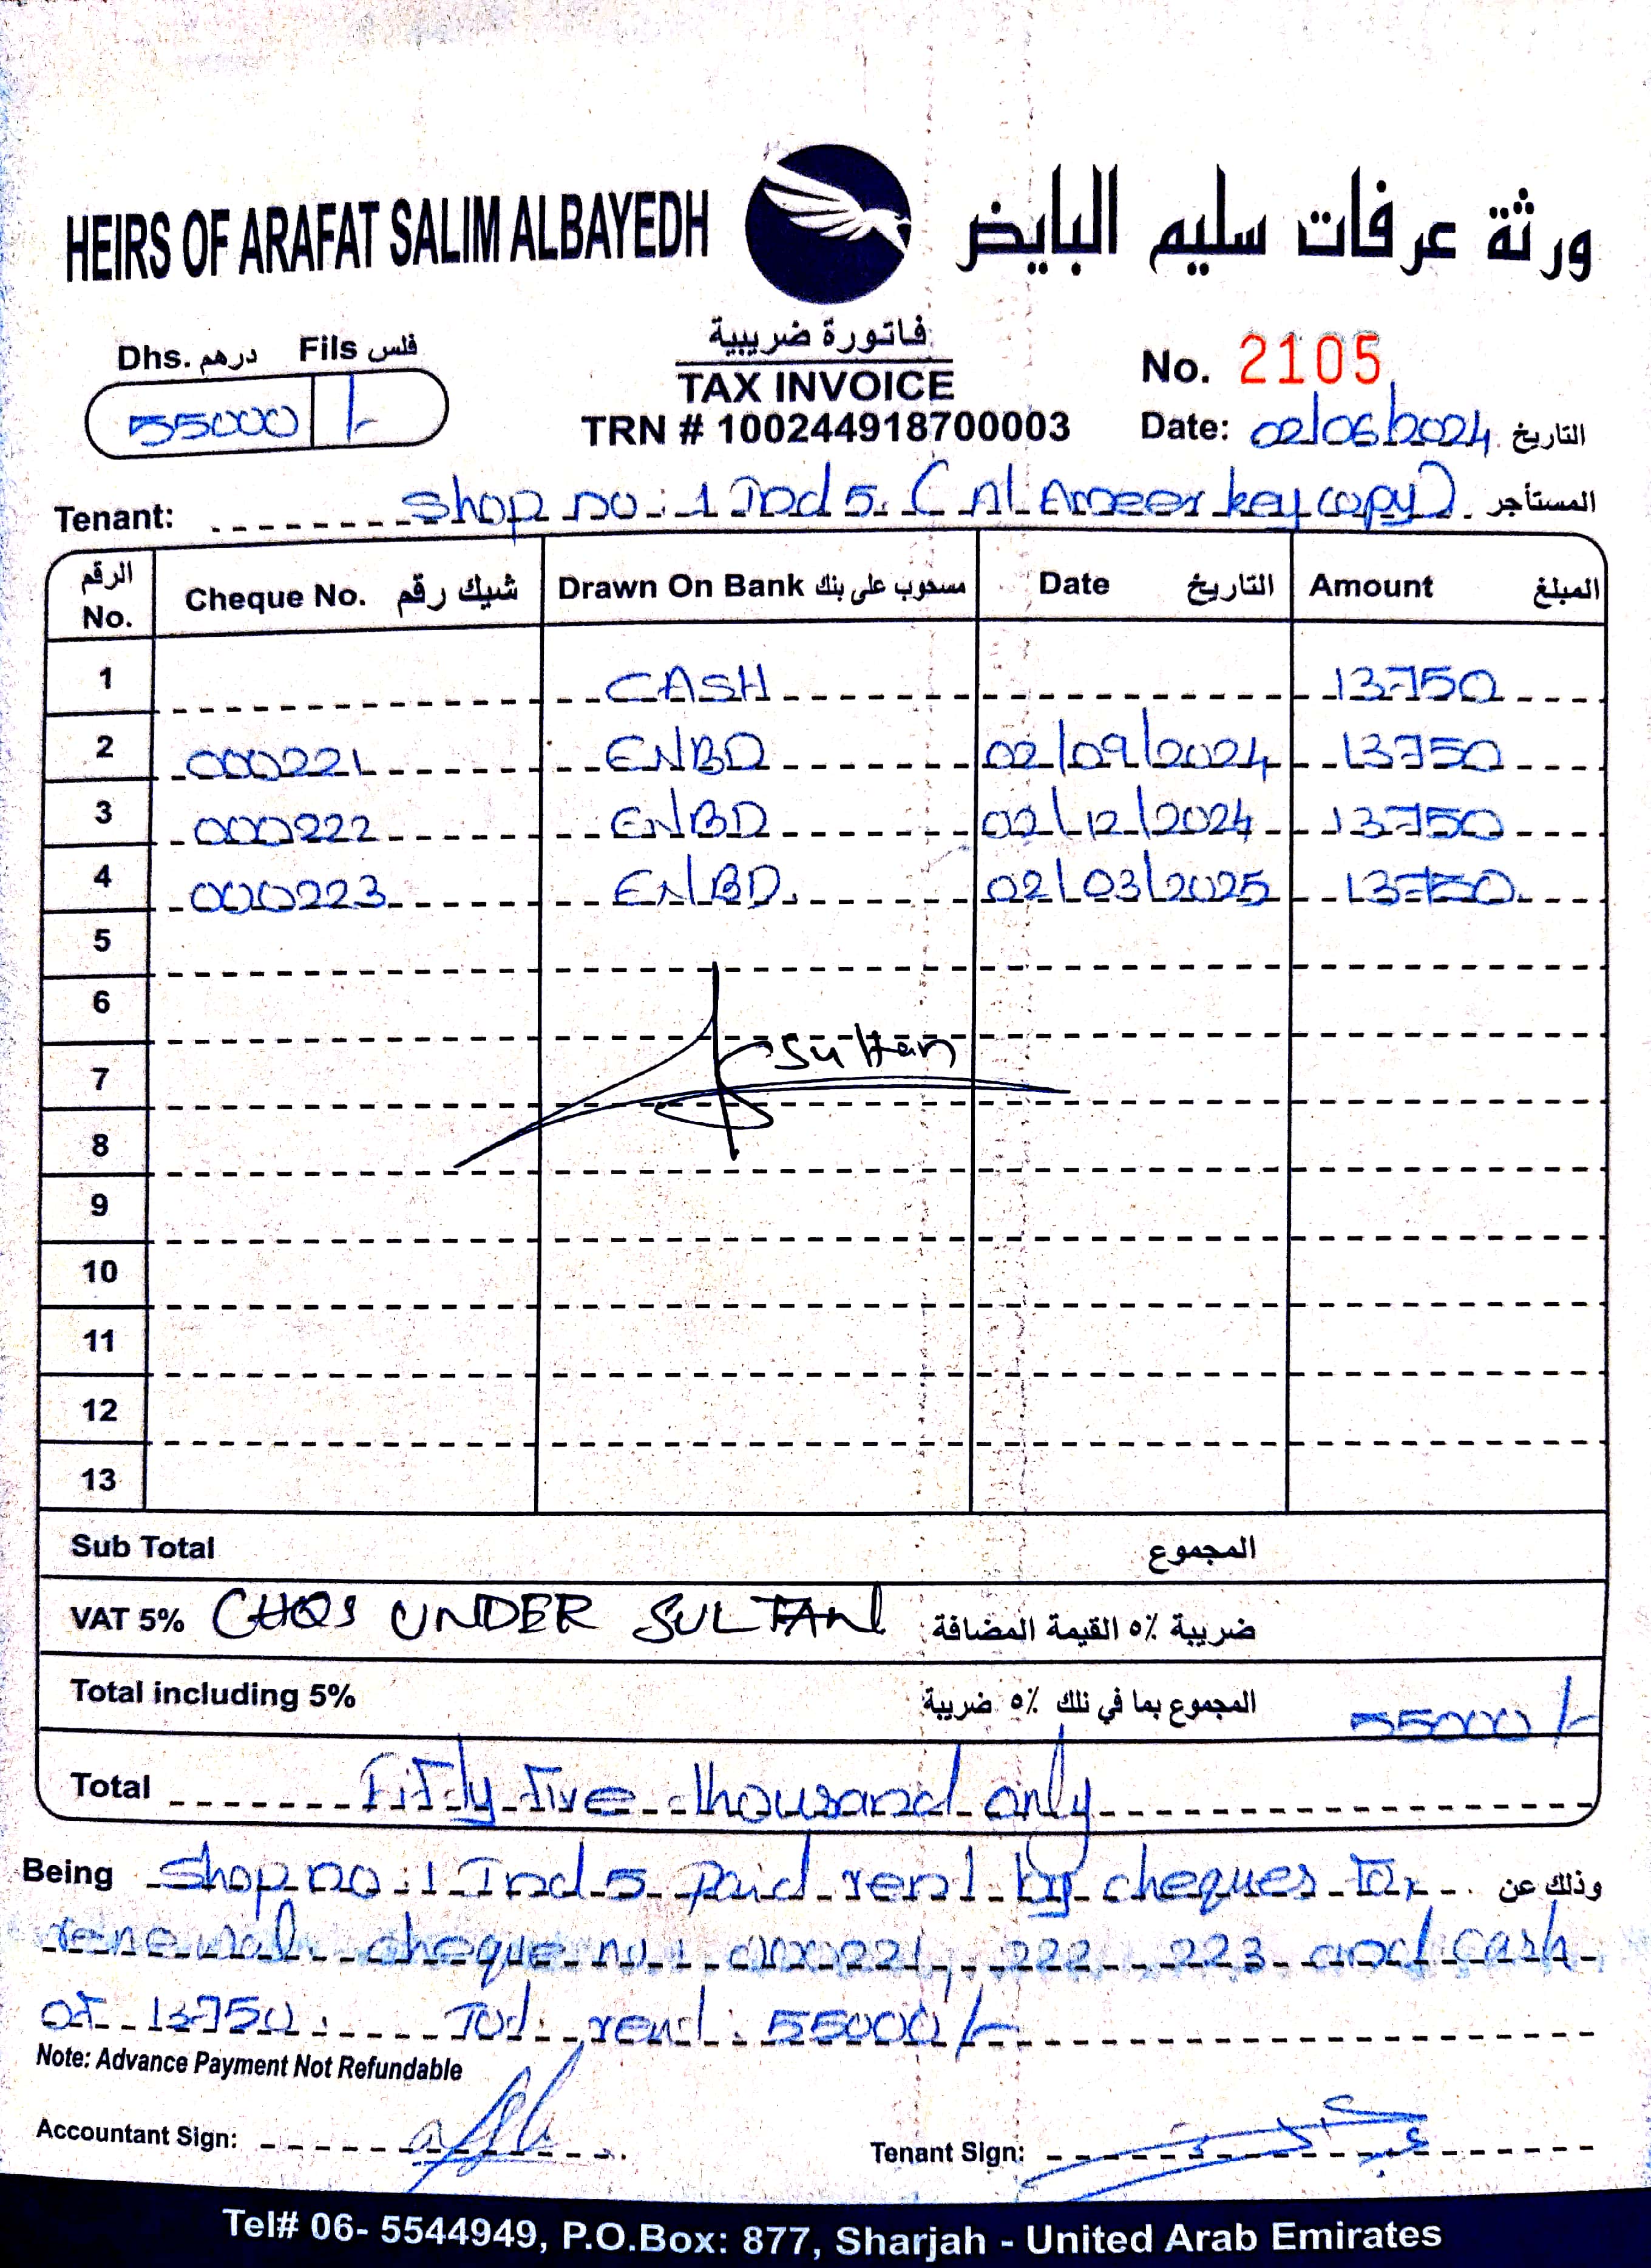 HEIRS OF ARAFAT SALIM ALBAYEDH ورثة عرفات سليم البايض
Dhs. درهم Fils فلس
55000 /-
فاتورة ضريبية
TAX INVOICE
TRN # 100244918700003
No. 2105
Date: 02/06/2024 التاريخ
Tenant: Shop no: 1 Ind 5. (Al Ameer key copy) المستأجر
الرقم No. Cheque No. شيك رقم Drawn On Bank مسحوب على بنك Date التاريخ Amount المبلغ
1 CASH 13750
2 000221 ENBD 02/09/2024 13750
3 000222 ENBD 02/12/2024 13750
4 000223 ENBD. 02/03/2025 13750
5
6
7 Sultan
8
9
10
11
12
13
Sub Total المجموع
VAT 5% CHQS UNDER SULTAN ضريبة ٥٪ القيمة المضافة
Total including 5% المجموع بما في ذلك ٥٪ ضريبة 55000/-
Total Fifty five thousand only
Being Shop no: 1 Ind 5 Paid rent by cheques for وذلك عن
renewal cheque no: 000221, 222, 223 and cash
of 13750. Tot. rent: 55000/-
Note: Advance Payment Not Refundable
Accountant Sign: Tenant Sign:
Tel# 06- 5544949, P.O.Box: 877, Sharjah - United Arab Emirates